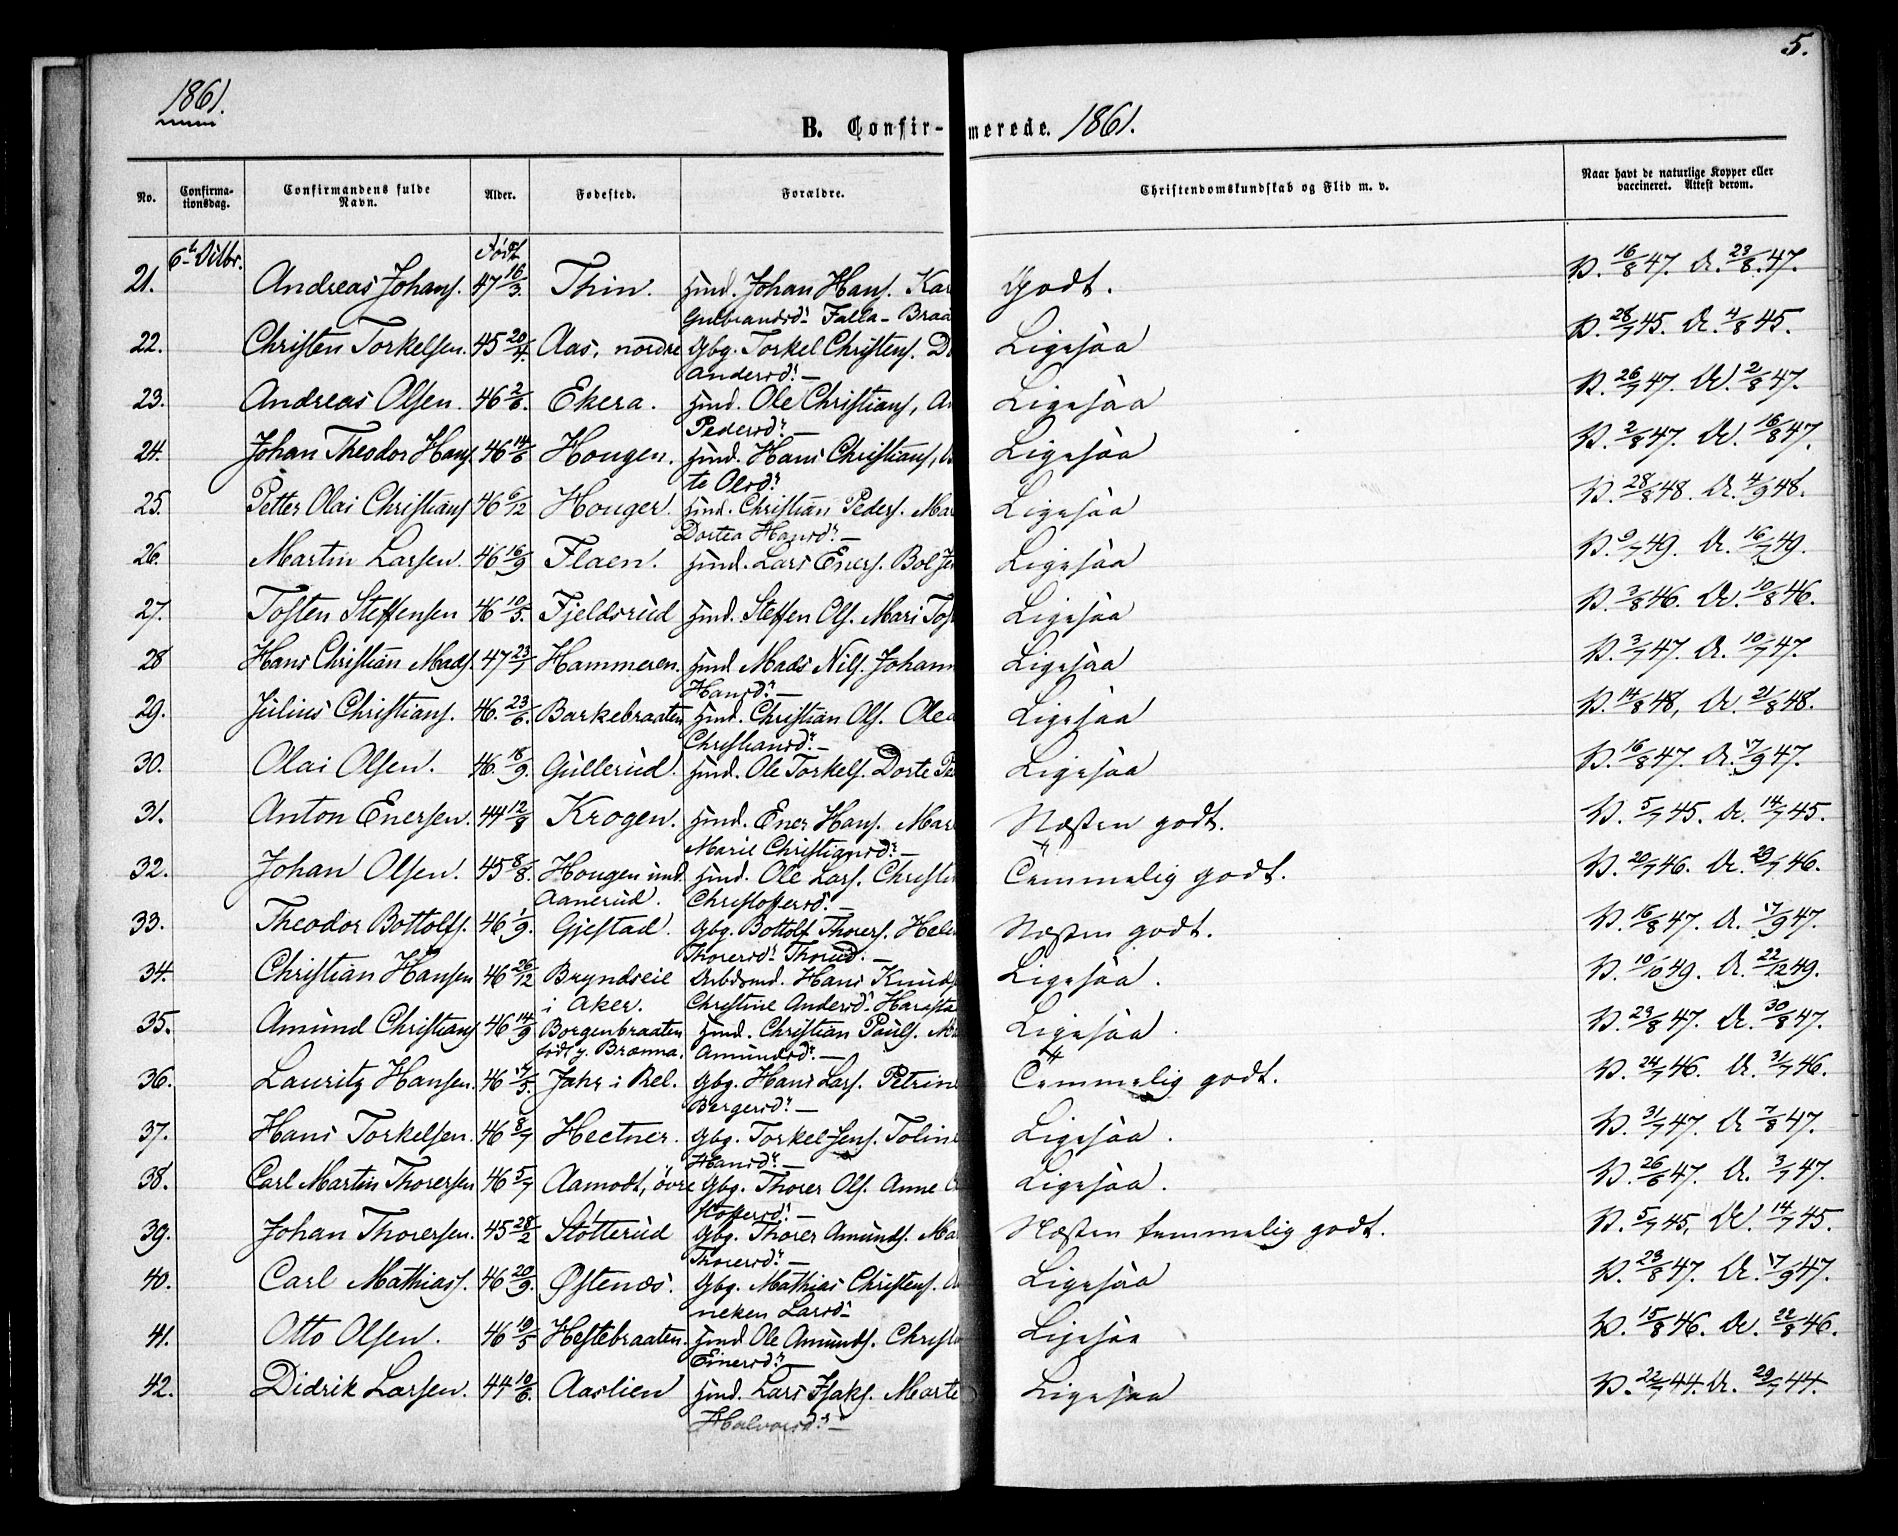 5.
1861.
B. Confir-merede. 1861.
No. Confirma-tionsdag. Confirmandens fulde Navn. Alder. Fødested. Forældre. Christendomskundskab og Flid m. v. Naar havt de naturlige Kopper eller vaccineret. Attest derom.
6te Octbr. Født
21. Andreas Johans. 47 16/3. Thin. Hmd. Johan Hans. Kar Godt. V. 16/8 47. A. 23/8 47.
Gulbrandsdr. Falla- Braa
22. Christen Torkelsen. 45 20/4. Aas, nordre Gbg. Torkel Christens. D Ligesaa V. 28/7 45. A. 4/8 45.
Andersdr. —
23. Andreas Olsen. 46 2/6. Ekera. Hmd. Ole Christians, A Ligesaa V. 26/7 47. A. 2/8 47.
Pedersdr. —
24. Johan Theodor Hans. 46 14/6 Hougen. Hmd. Hans Christians, Ligesaa V. 2/8 47. A. 16/8 47.
te Olsdr.
25. Petter Olai Christians 46 6/12 Houger. Hmd. Christian Peders. Mar Ligesaa V. 28/8 48. A. 4/9 48.
Dortea Hansdr. —
26. Martin Larsen. 46 16/9 Flaen. Hmd. Lars Eners. Bol Je Ligesaa V. 9/7 49. A. 16/7 49.
27. Tosten Steffensen 46 10/5. Fjeldsrud Hmd. Steffen Ols. Mari Tos Ligesaa V. 3/8 46. A. 10/8 46.
28 Hans Christian Mads. 47 23/7 Hammeren. Hmd Mads Nils. Johann Ligesaa V. 3/7 47. A. 10/7 47.
Hansdr. —
29. Julius Christians. 46. 23/6. Barkebraaten Hmd. Christian Ols. Olea Ligesaa V. 14/8 48, A. 21/8 48.
Christiansdr. —
30. Olai Olsen. 46. 18/9. Gullerud. Hmd. Ole Torkels. Dorte Pe Ligesaa V. 16/8 47. A. 7/9 47.
31. Anton Enersen. 44 12/8 Krogen. Hmd. Ener Hans. Mar Næsten godt. V. 5/7 45. A. 14/7 45.
Marie Christiansdr. —
32. Johan Olsen. 45 8/8. Hougen und. Hmd. Ole Lars. Christi Temmelig godt. V. 20/7 46. A. 29/7 46.
Aanerud. Christoffersdr. —
33. Theodor Bottolfs. 46 1/9. Gjestad. Gbg. Bottolf Thorers. Hele Næsten godt. V. 16/8 47. A. 7/9 47.
Thorersdr. Thorud. —
34. Christian Hansen 46 26/12 Bryndseie Arbdsmd. Hans Knuds Ligesaa. V. 10/10 49. A. 22/12 49.
i Aker. Christine Andersdr. Harasta
35. Amund Christians 46 14/9 Borgenbraaten Hmd. Christian Pauls. M Ligesaa. V. 23/8 47. A. 30/8 47.
født p. Brænna. Amundsdr. —
36. Lauritz Hansen. 46 17/5. Jahr i Bel. Gbg. Hans Lars. Petrine Temmelig godt. V. 24/7 46. A. 31/7 46.
Bergersdr. —
37. Hans Torkelsen. 46 8/7 Hectner. Gbg. Torkel Jens. Toline Ligesaa. V. 31/7 47. A 7/8 47.
Hansdr. —
38. Carl Martin Thorersen 46 5/7 Aamodt, övre Gbg. Thorer Ols. Anne Ligesaa. V. 26/6 47. A. 3/7 47.
stoffersdr. —
39. Johan Thorersen. 45 28/2 Stötterud Gbg. Thorer Amunds. Ma Næsten temmelig godt. V. 5/7 45, A. 14/7 45.
Thorersdr. —
40. Carl Mathiass. 46 20/9. Østenæs. Gbg. Mathias Christens. Ligesaa V. 23/8 47. A. 7/9 47.
neken Larsdr.
41. Otto Olsen. 46 19/5 Heftebraaten. Hmd Ole Amunds. Christi Ligesaa V. 15/8 46. A. 22/8 46.
Einersdr. —
42. Didrik Larsen. 44 19/6. Aaslien Hmd. Lars Isaks. Marte Ligesaa V. 22/7 44. A. 29/7 44.
Halvorsdr. —